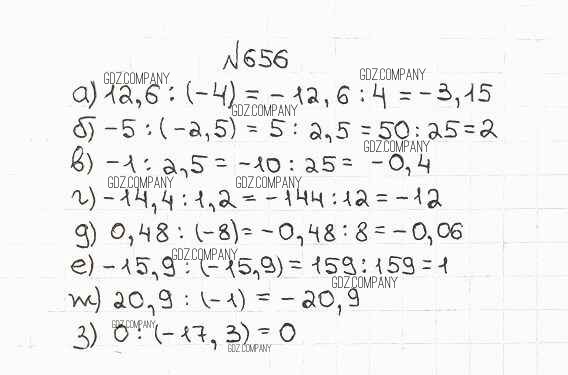 №656
GDZ.COMPANY GDZ.COMPANY
а) 12,6 : (-4) = -12,6 : 4 = -3,15
GDZ.COMPANY
б) -5 : (-2,5) = 5 : 2,5 = 50 : 25 = 2
GDZ.COMPANY
в) -1 : 2,5 = -10 : 25 = -0,4
GDZ.COMPANY GDZ.COMPANY
г) -14,4 : 1,2 = -144 : 12 = -12
д) 0,48 : (-8) = -0,48 : 8 = -0,06
GDZ.COMPANY
е) -15,9 : (-15,9) = 159 : 159 = 1
GDZ.COMPANY
ж) 20,9 : (-1) = -20,9
GDZ.COMPANY
з) 0 : (-17,3) = 0
GDZ.COMPANY